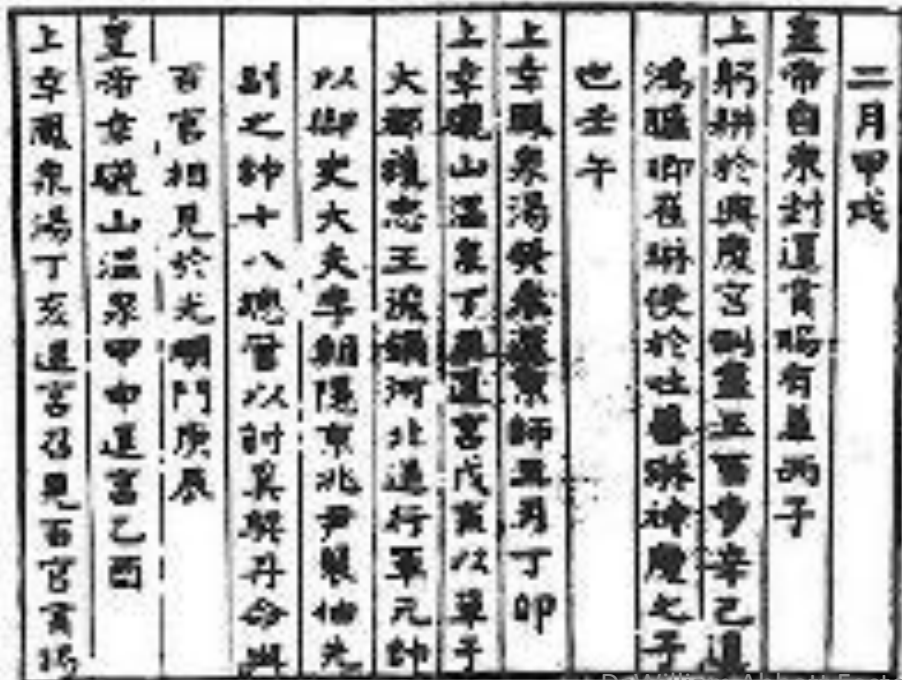 二月甲戌
皇帝自東封還賞賜有差丙子
上躬耕於興慶宮側盡三百步辛巳遣
鴻臚卿崔琳使於吐蕃琳神慶之子
也壬午
上幸鳳泉湯癸未還京師五月丁卯
上幸溫山溫泉丁還宮戊寅以單于
大都護忠王浚領河北道行軍元帥
以御史大夫李朝隱京兆尹裴伷先
副之帥十八總管以討奚契丹命與
百官相見於光順門庚辰
皇帝幸山溫泉甲申還宮己酉
上幸鳳泉湯丁亥還宮召見百官賞